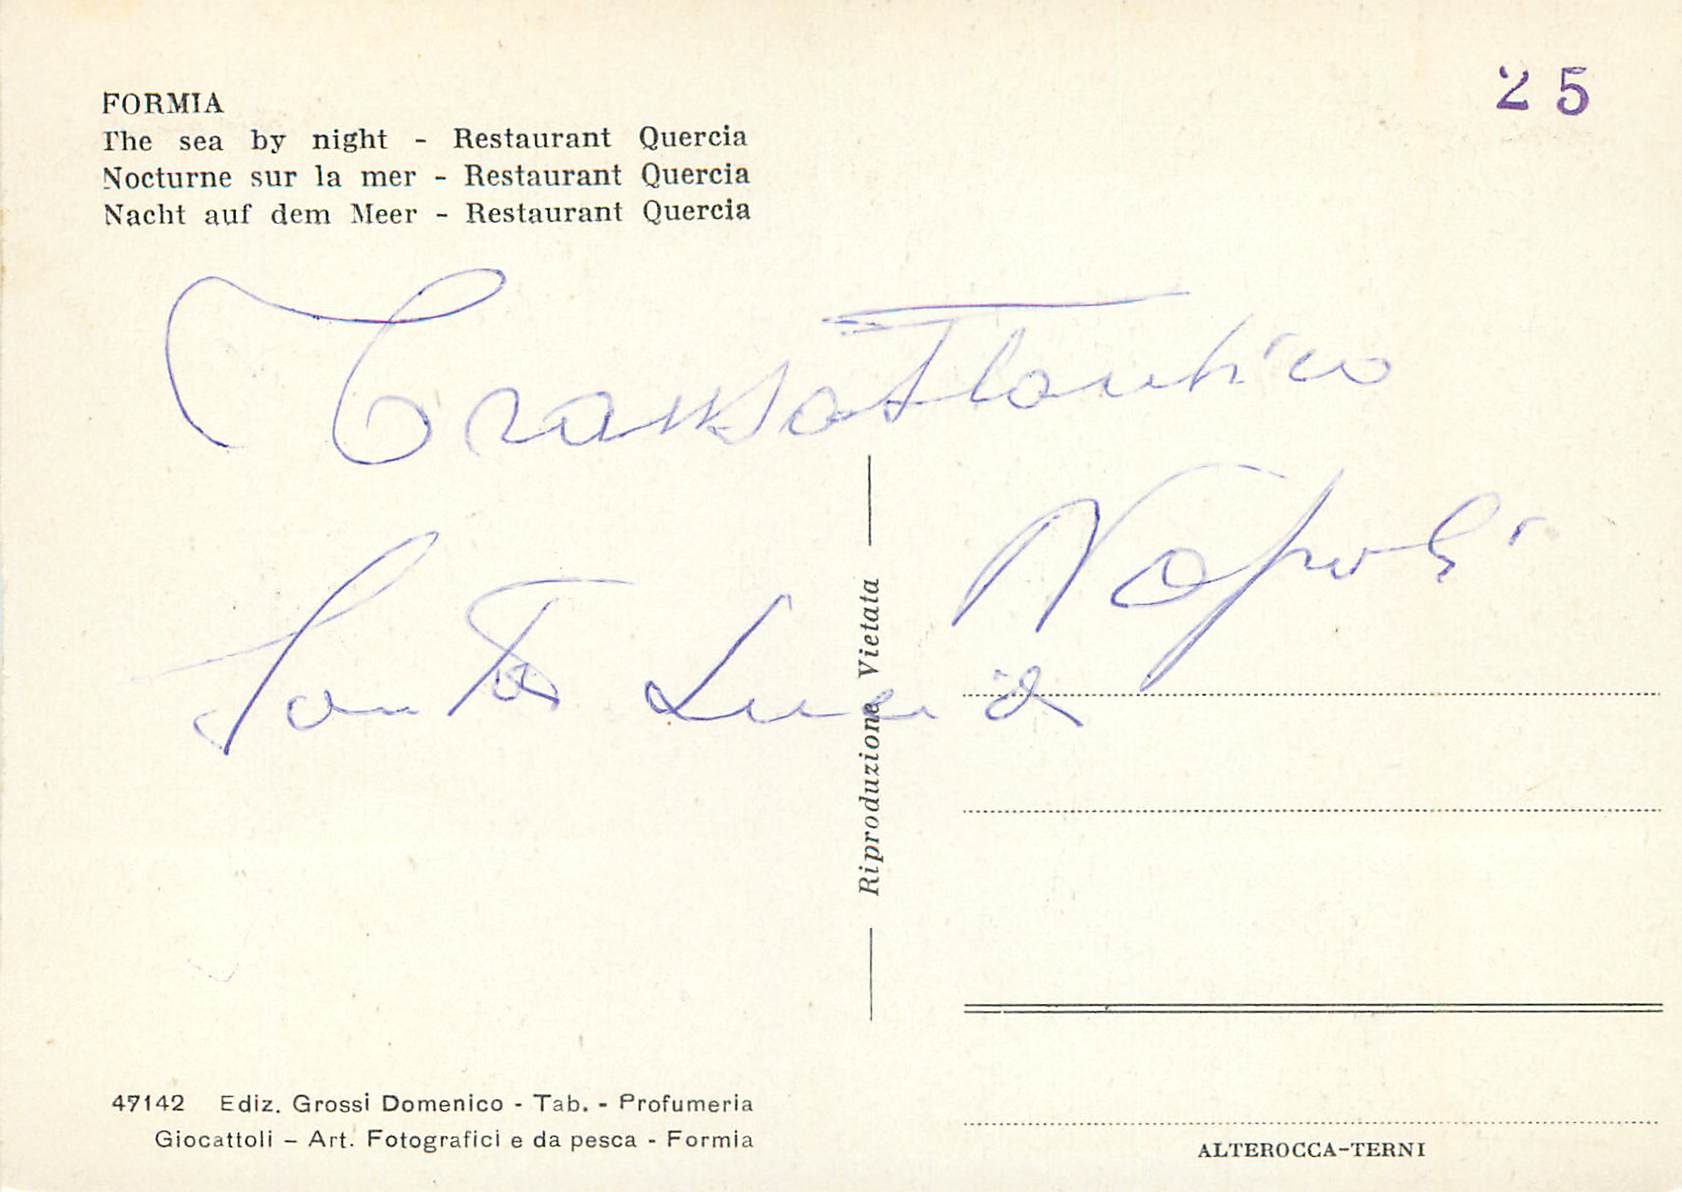 25
FORMIA
The sea by night - Restaurant Quercia
Nocturne sur la mer - Restaurant Quercia
Nacht auf dem Meer - Restaurant Quercia
Transatlantico
Napoli
Santa Lucia
Riproduzione Vietata
47142 Ediz. Grossi Domenico - Tab. - Profumeria
Giocattoli - Art. Fotografici e da pesca - Formia
ALTEROCCA-TERNI